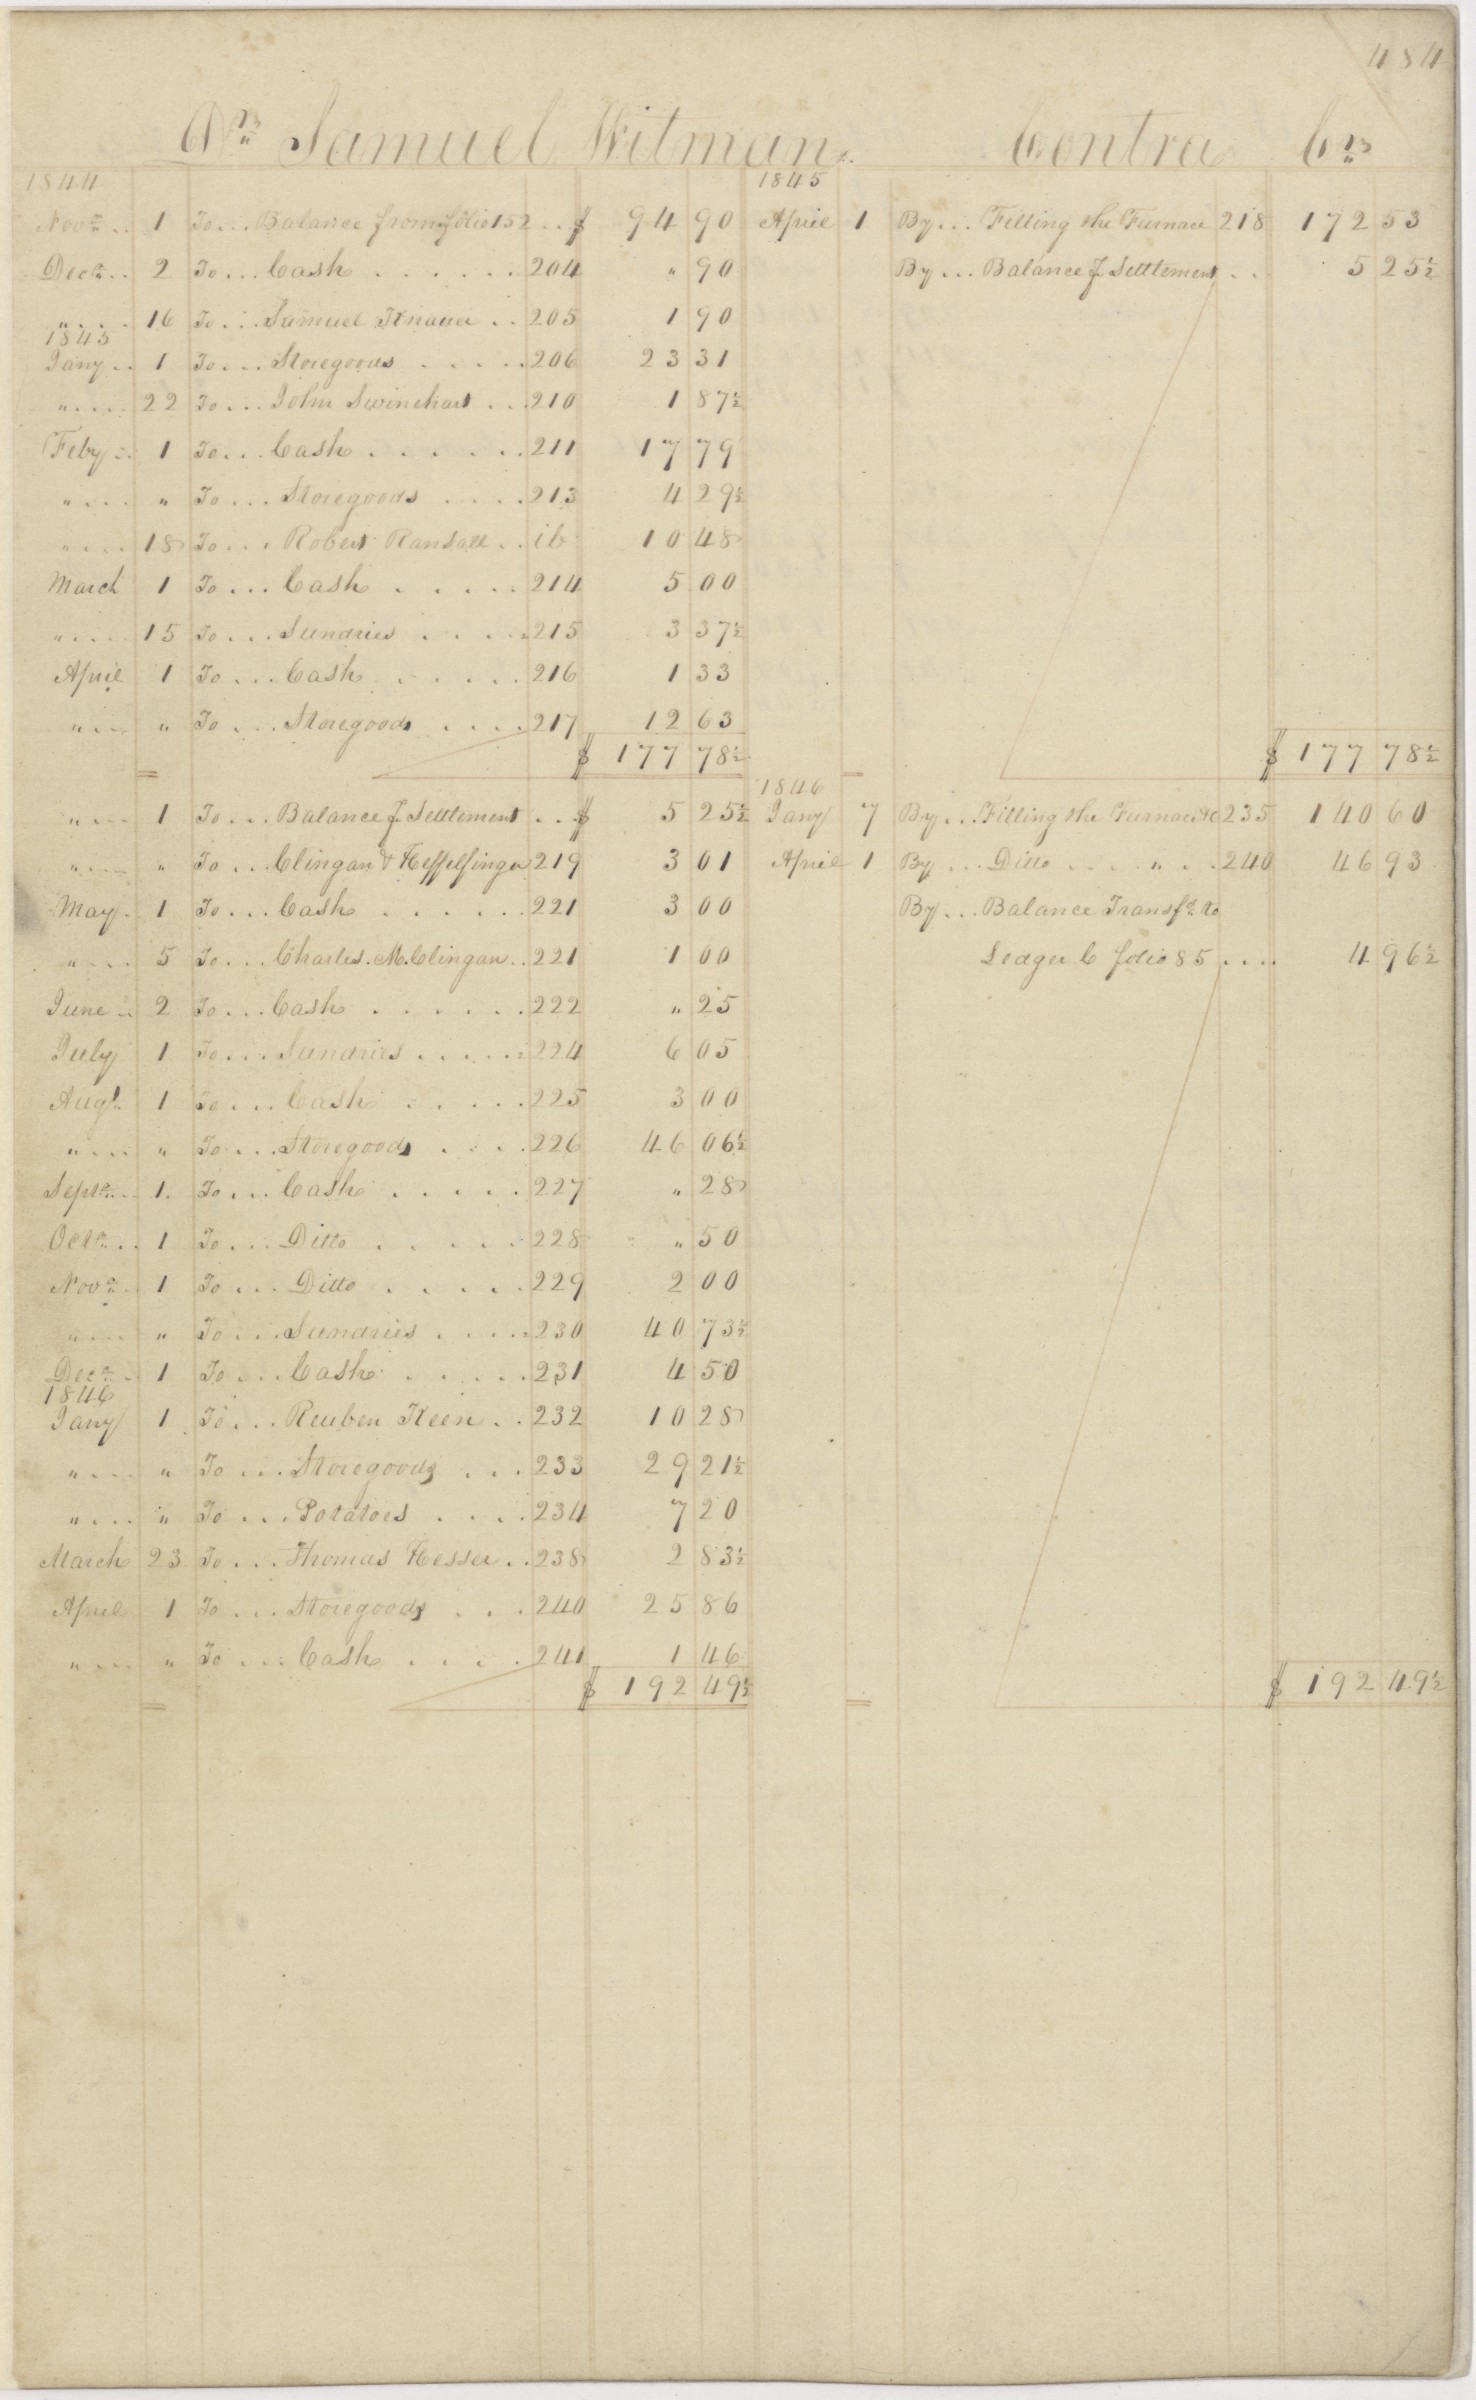 484
Dr. Samuel Witman. Contra Cr.
1844
Novr. .. 1 To ... Balance from folio 152 .. $ 94 90
Decr. .. 2 To ... Cash . . . . . . 204 " 90
" .... 16 To ... Samuel Knauer .. 205 1 90
1845
Jany .. 1 To ... Storegoods . . . . . 206 23 31
" .... 22 To ... John Swinehart ... 210 1 87½
Feby .. 1 To ... Cash . . . . . . 211 17 79
" .... " To ... Storegoods . . . . 213 4 29½
" .... 18 To ... Robert Ransall .. ib 10 48
March 1 To ... Cash . . . . . 214 5 00
" .... 15 To ... Sundries . . . . 215 3 37½
April 1 To ... Cash . . . . . 216 1 33
" ... " To ... Storegoods . . . . 217 12 63
$ 177 78½
" ... 1 To ... Balance f. Settlement ... $ 5 25½
" .... " To ... Clingan & Heffelfinger 219 3 01
May . 1 To ... Cash . . . . . . 221 3 00
" .... 5 To ... Charles. M. Clingan .. 221 1 00
June .. 2 To ... Cash . . . . . . 222 " 25
July 1 To ... Sundries . . . . . 224 6 05
Augt. 1 To ... Cash . . . . . 225 3 00
" .... " To ... Storegoods . . . . 226 46 06½
Septr. .. 1. To ... Cash . . . . . 227 " 28
Octr. .. 1 To ... Ditto . . . . . 228 " 50
Novr. . 1 To ... Ditto . . . . . 229 2 00
" .... " To ... Sundries . . . . 230 40 73½
Decr. . 1 To ... Cash . . . . . 231 4 50
1846
Jany 1 To ... Reuben Keen .. 232 10 28
" .... " To ... Storegoods ... 233 29 21½
" .... " To ... Potatoes . . . . 234 7 20
March 23 To ... Thomas Hesser .. 238 2 83½
April 1 To ... Storegoods . . . 240 25 86
" .... " To ... Cash . . . . 241 1 46
$ 192 49½
1845
April 1 By ... Filling the Furnace 218 172 53
By ... Balance f. Settlement .. 5 25½
$ 177 78½
1846
Jany 7 By ... Filling the Furnace &c 235 140 60
April 1 By ... Ditto .... " .. 240 46 93
By ... Balance Transfd. to
Ledger C folio 85 .... 4 96½
$ 192 49½